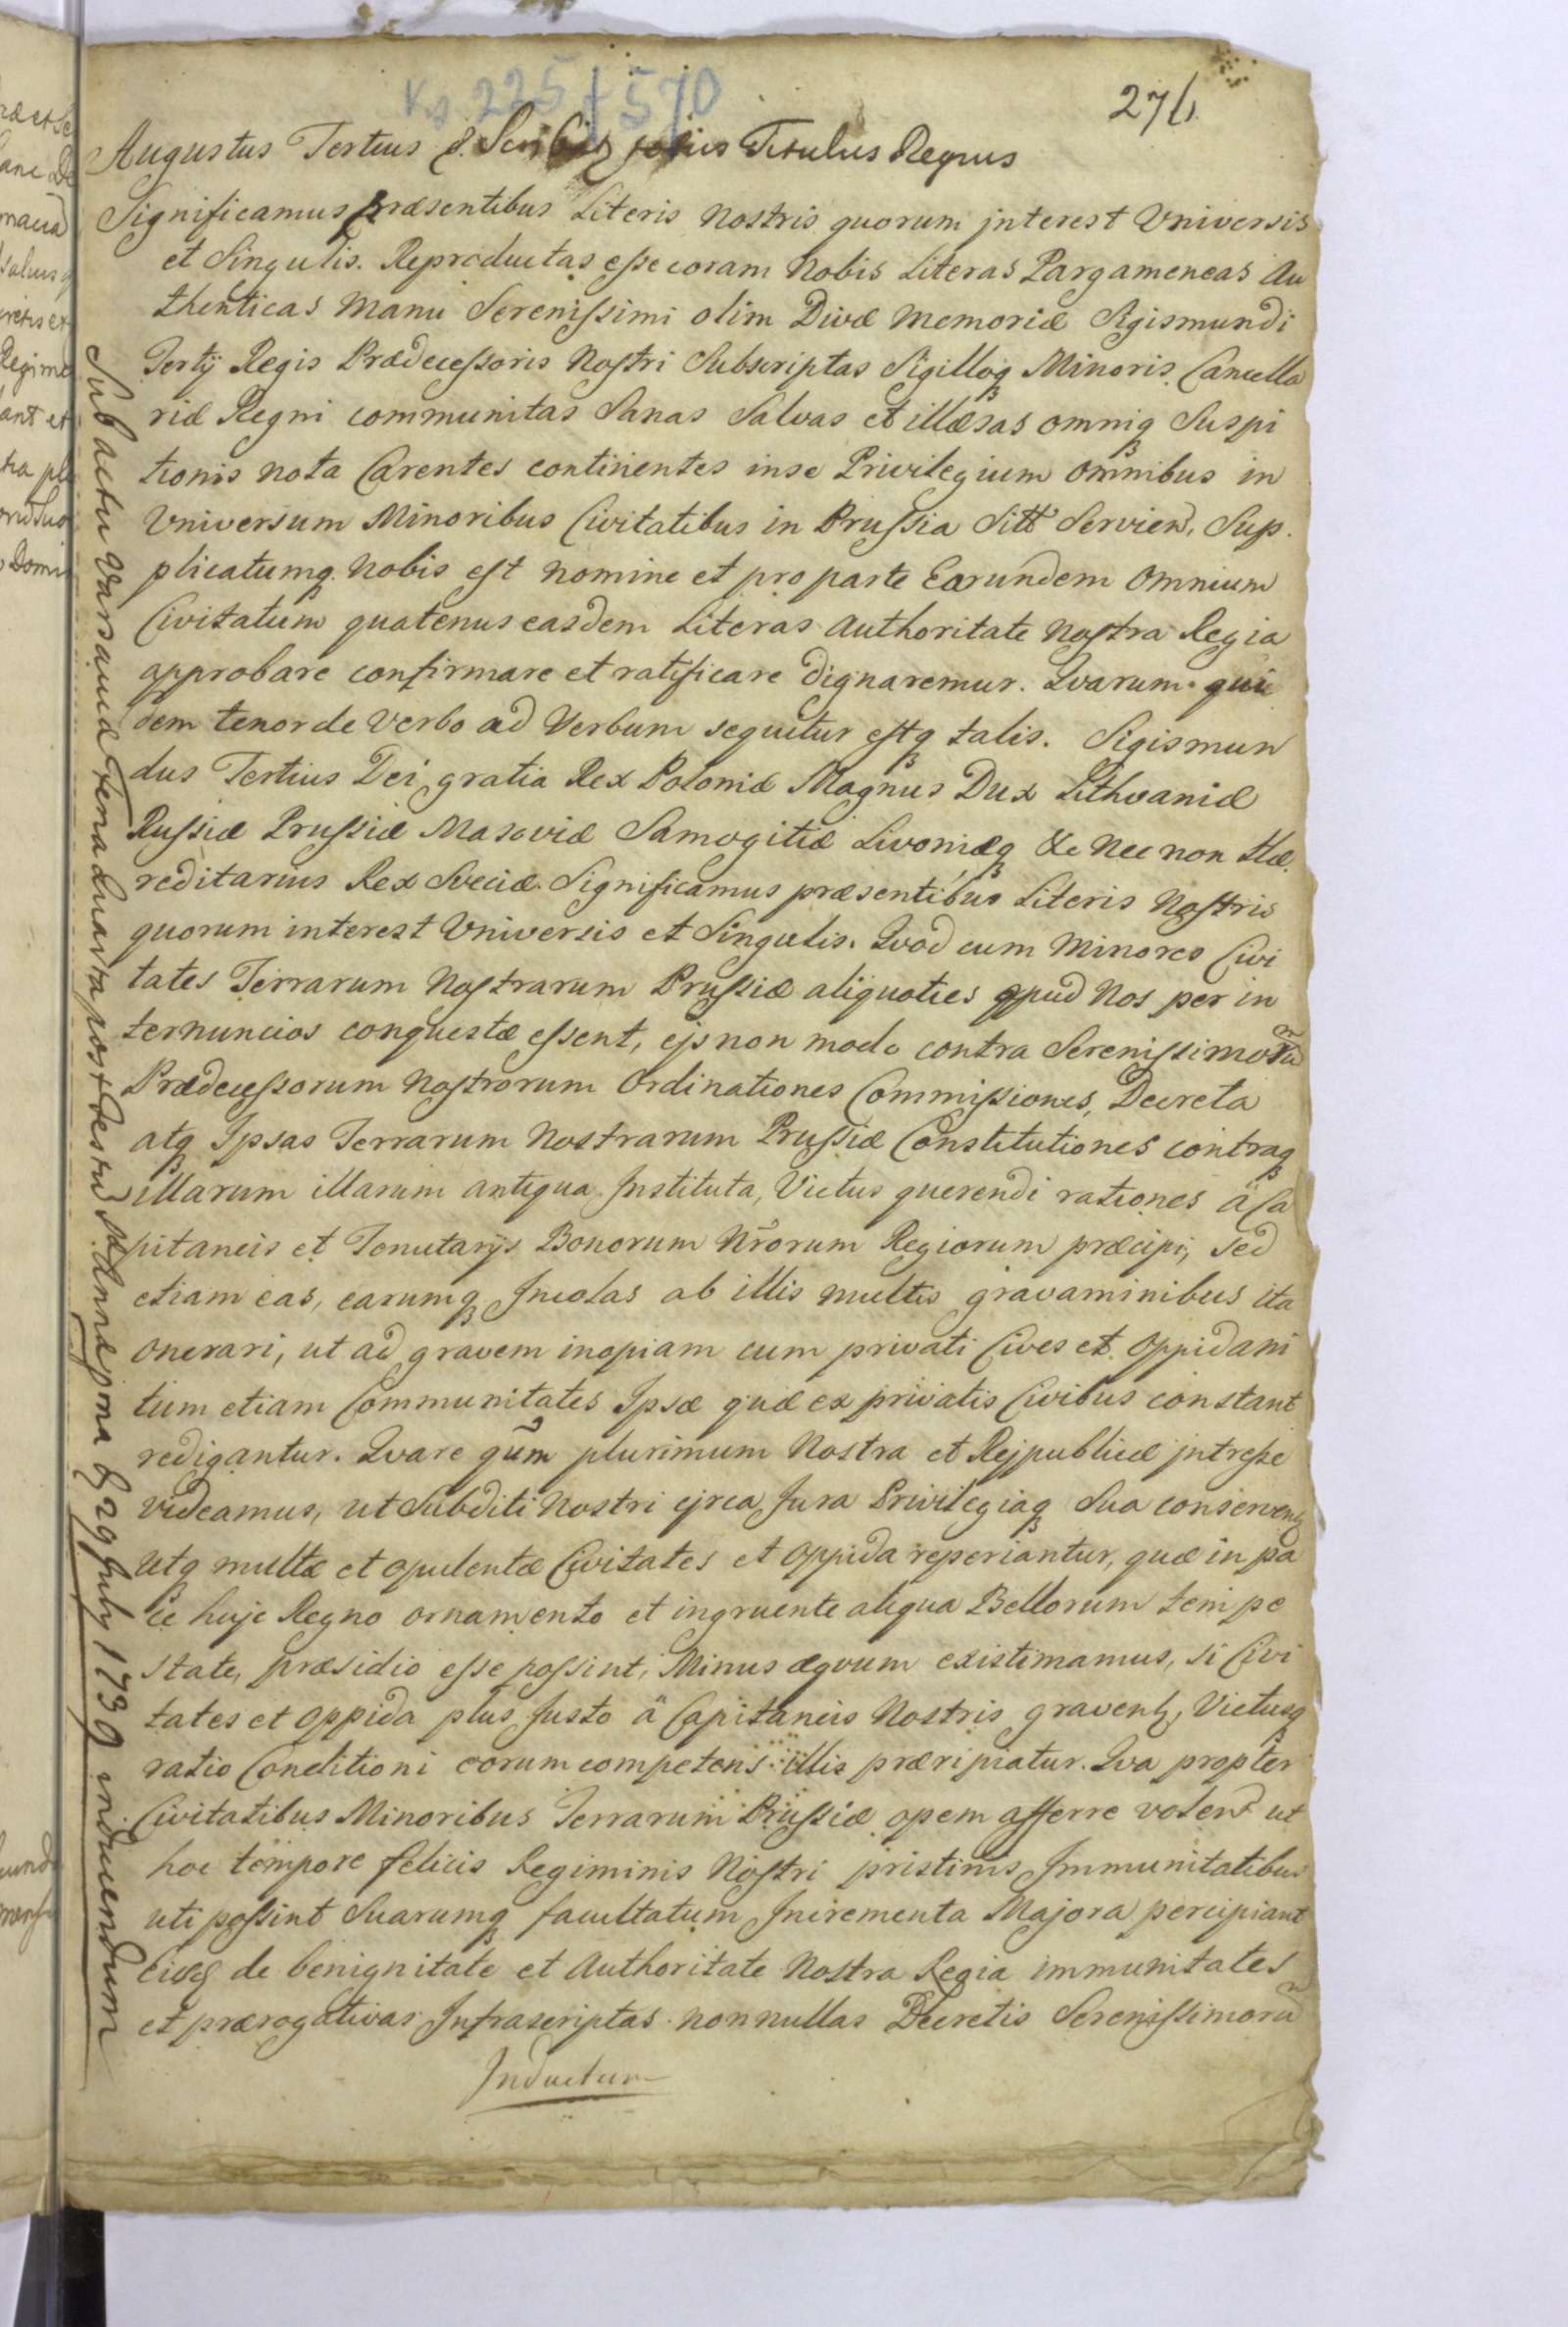 276
Augustus Tertius &. Titulus Regius
Significamus præsentibus Literis Nostris quorum interest Universis
et Singulis. Reproductas esse coram Nobis Literas Pargameneas Au
thenticas Manu Serenissimi olim Divæ Memoriæ Sigismundi
Tertij Regis Prædecessoris Nostri Subscriptas Sigilloq Minoris Cancella
riæ Regni communitas Sanas Salvas et illæsas omniq Suspi
tionis nota Carentes continentes in se Privilegium omnibus in
Universum Minoribus Civitatibus in Prussia Sitt Servien, Sup.
plicatumq. Nobis est nomine et pro parte Earundem omnium
Civitatum quatenus easdem Literas Authoritate Nostra Regia
approbare confirmare et ratificare dignaremur. Qvarum qui
dem tenor de verbo ad Verbum sequitur estq talis. Sigismun
dus Tertius Dei gratia Rex Poloniæ Magnus Dux Lithvaniæ
Russiæ Prussiæ Masoviæ Samogitiæ Livoniæq &c Nec non Hæ
reditarius Rex Sveciæ. Significamus præsentibus Literis Nostris
quorum interest Universis et Singulis. Qvod cum Minores Civi
tates Terrarum Nostrarum Prussiæ aliquoties apud Nos per in
ternuncios conquestæ essent, ejs non modo contra Serenissimorum
Prædecessorum Nostrorum Ordinationes Commissiones, Decreta
atq Ipsas Terrarum Nostrarum Prussiæ Constitutiones contraq
illarum illarum antiqua Instituta, Victus querendi rationes â Ca
pitaneis et Tenutarijs Bonorum Nrorum Regiorum præcipi, sed
etiam eas, earumq Incolas ab illis multis gravaminibus ita
onerari, ut ad gravem inopiam cum privati Cives et Oppidani
tum etiam Communitates Ipsæ quæ ex privatis Civibus constant
redigantur. Qvare qum plurimum Nostra et Rejpublicæ jntresse
videamus, ut Subditi Nostri cjrca Jura Privilegiaq Sua conserventz
utq multæ et opulentæ Civitates et Oppida reperiantur, quæ in pa
ce hujc Regno ornamento et ingruente aliqua Bellorum tempe
state, præsidio esse possint, Minus æqvum existimamus, si Civi
tates et Oppida plus justo â Capitaneis Nostris graventz, Victusq
ratio Conditioni eorum competens illis præripiatur. Qva propter
Civitatibus Minoribus Terrarum Prussiæ opem afferre volend ut
hoc tempore felicis Regiminis Nostri pristinis Immunitatibus
uti possint Suarumq facultatum Incrementa Majora percipiant
de benignitate et Authoritate Nostra Regia immunitates
et prærogativas Infrascriptas nonnullas Decretis Serenissimorum
Inductum
Sub actu Varsaviæ Feria Quarta post Festum S. Annæ 29 July 1739 inducendum